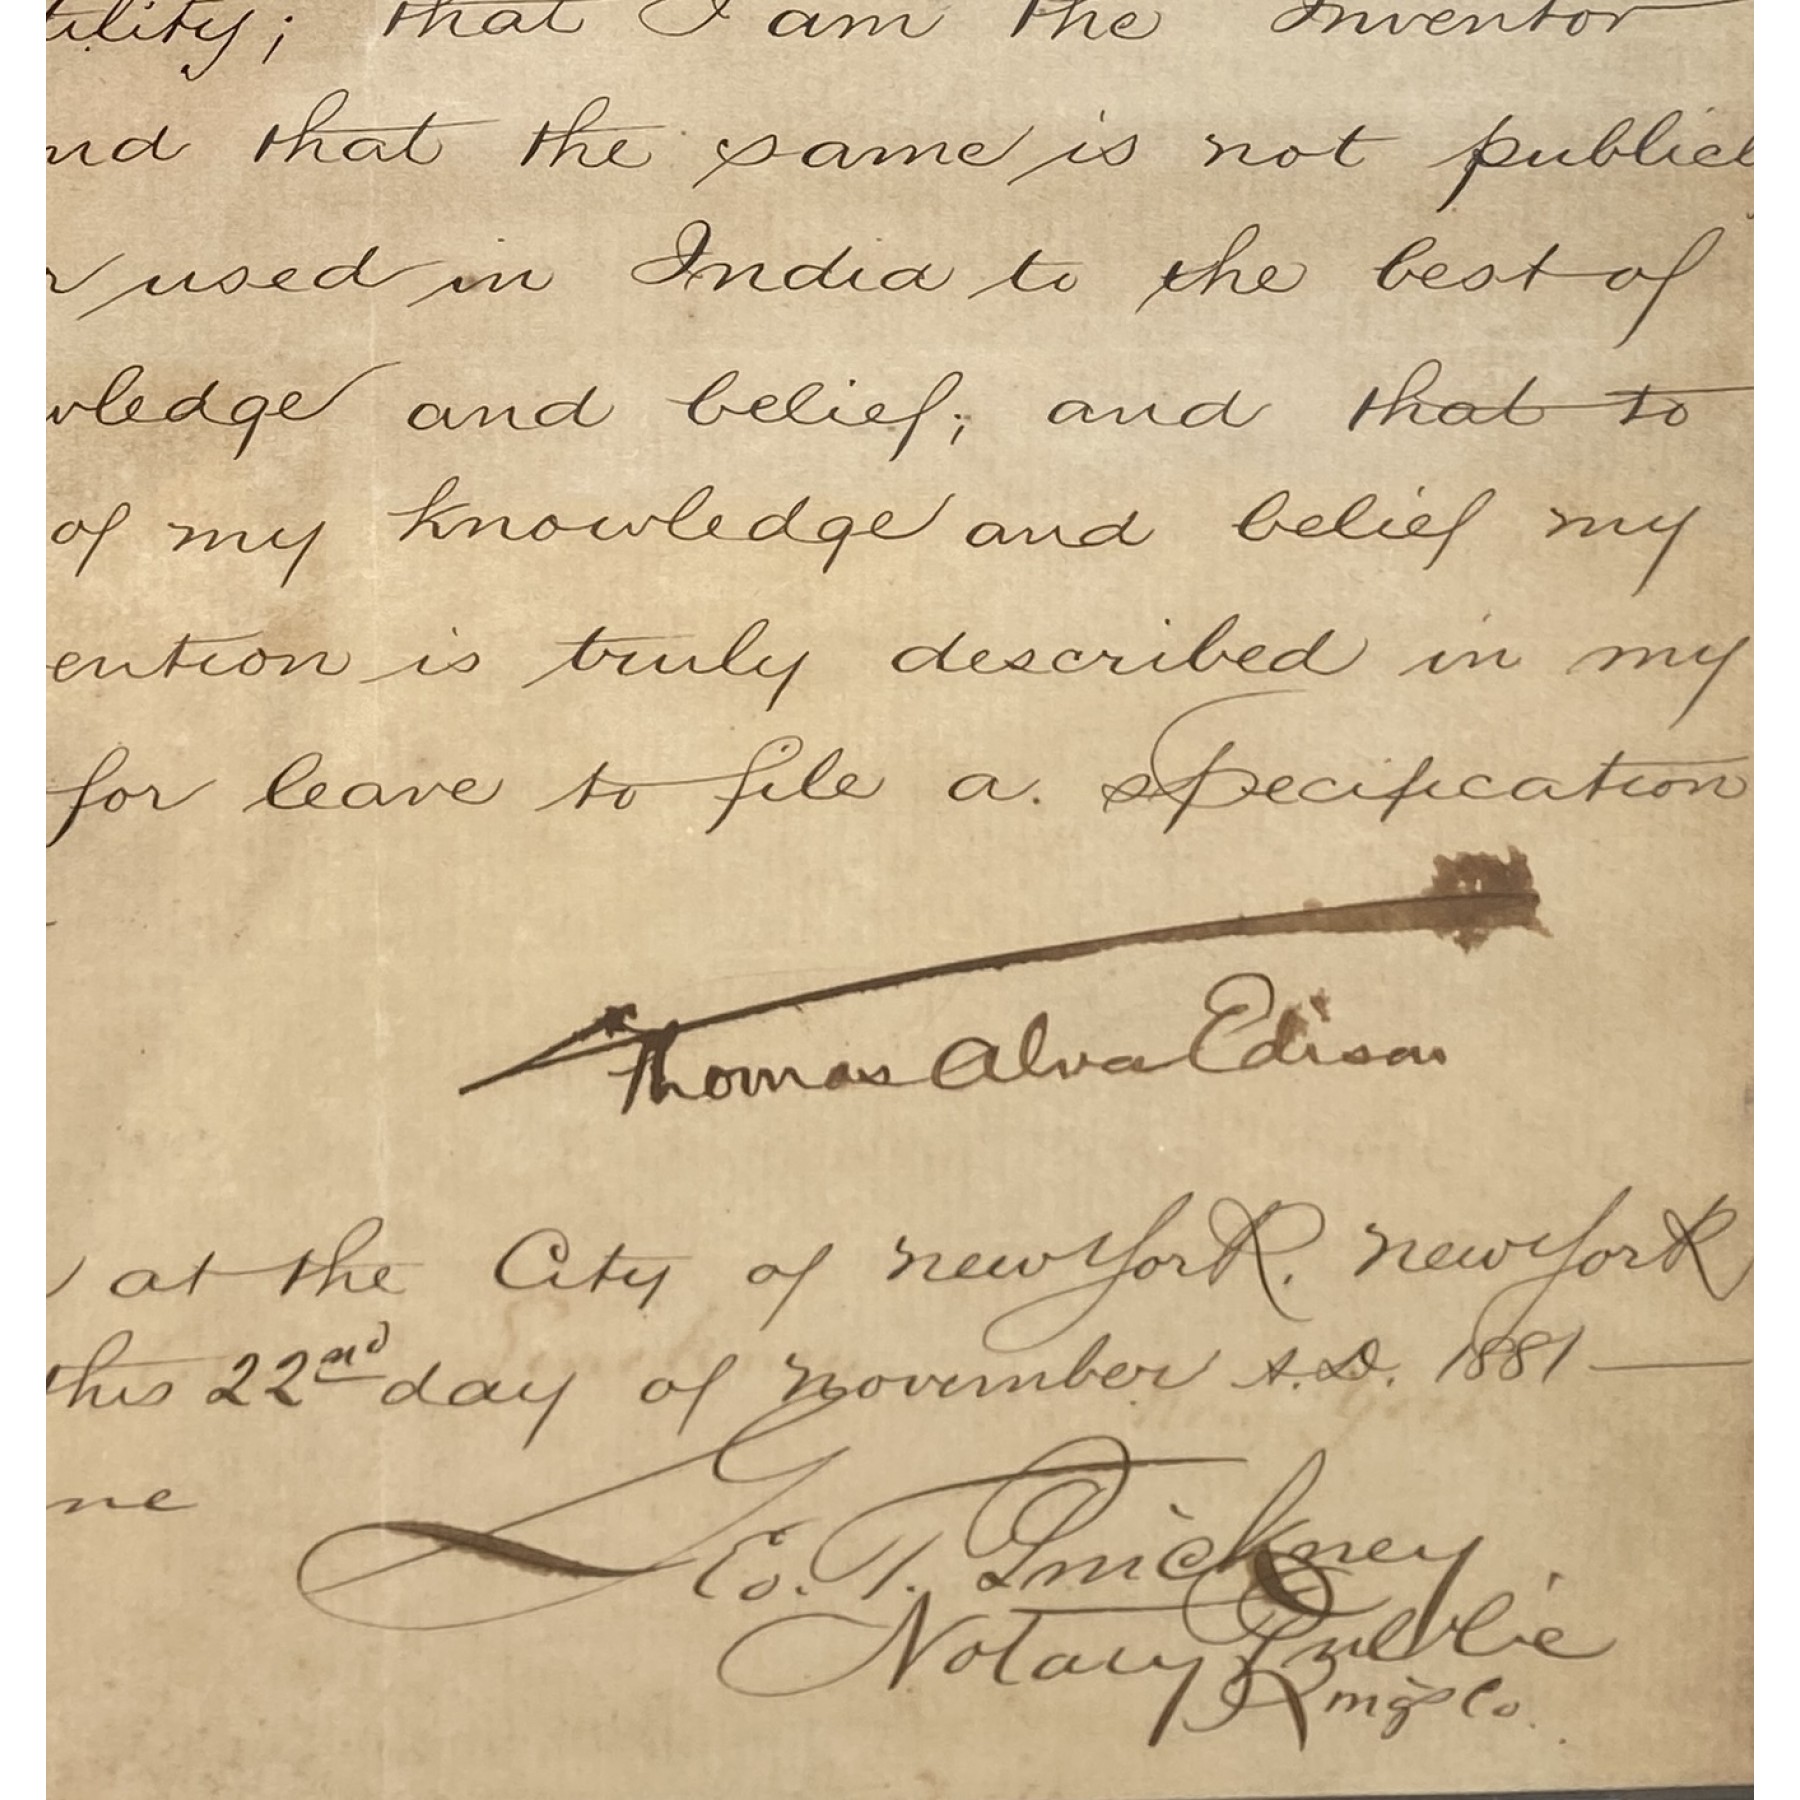 tility; that I am the Inventor
nd that the same is not publicl
r used in India to the best of
wledge and belief; and that to
of my knowledge and belief my
ention is truly described in my
for leave to file a. specification
Thomas Alva Edison
at the City of new York. new York
this 22nd day of november A.D. 1881
me
Geo. T. Pinckney
Notary Public
Kings Co.